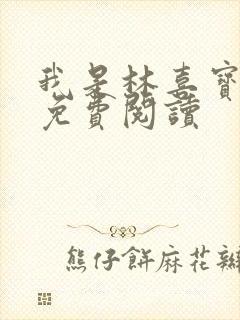 我是林喜寶
免費閱讀
熊仔餅麻花辮